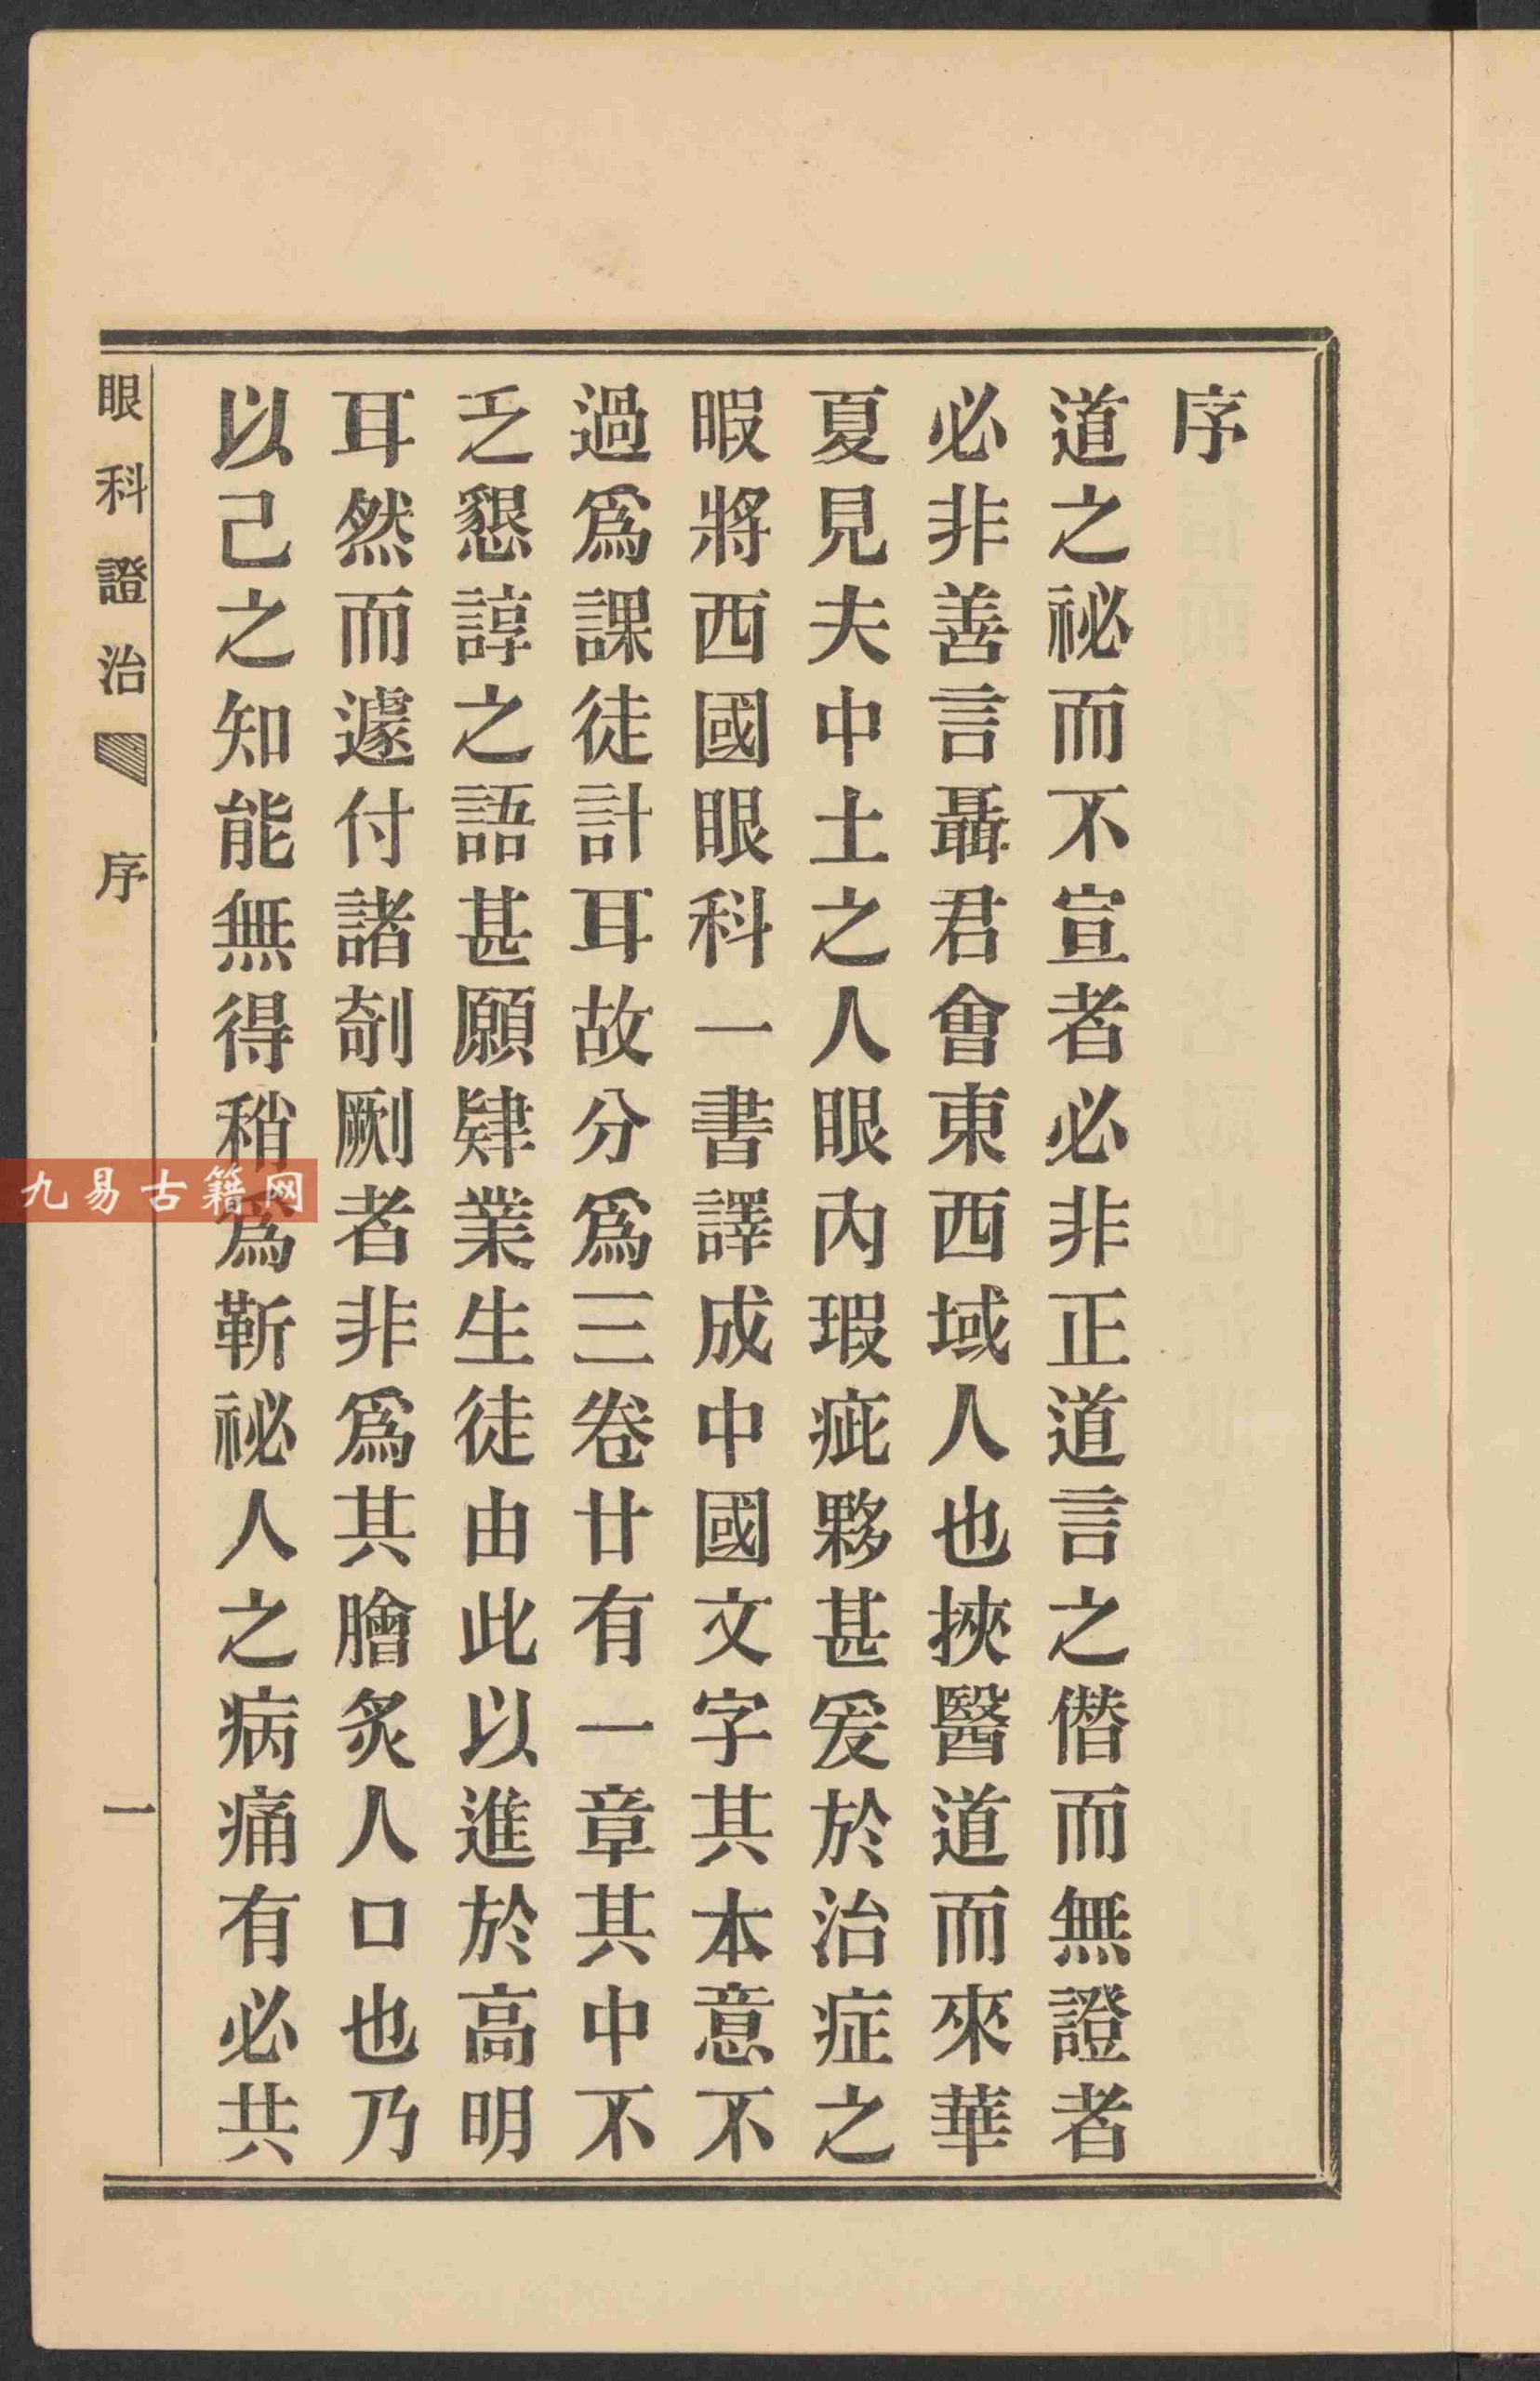 序
道之祕而不宣者必非正道言之僭而無證者
必非善言聶君會東西域人也挾醫道而來華
夏見夫中土之人眼內瑕疵夥甚爰於治症之
暇將西國眼科一書譯成中國文字其本意不
過爲課徒計耳故分爲三卷廿有一章其中不
乏懇諄之語甚願肄業生徒由此以進於高明
耳然而遽付諸剞劂者非爲其膾炙人口也乃
以己之知能無得稍爲靳祕人之病痛有必共
眼科證治 序 一
九易古籍网